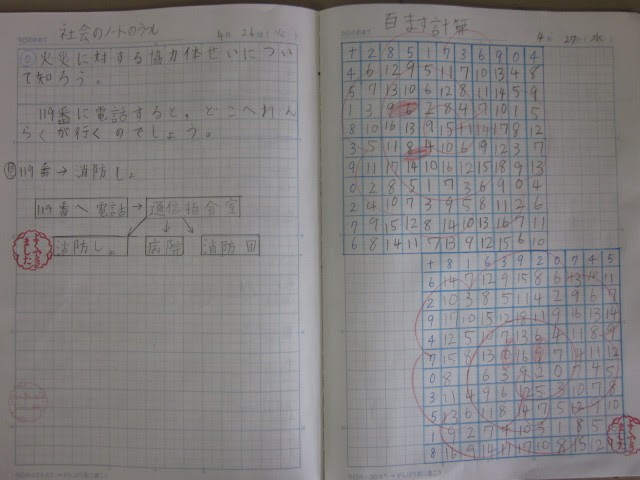 社会のノートのうえ
4月26日(火)
◎火災に対する協力体せいについ
て知ろう。
119番に電話すると、どこへれん
らくが行くのでしょう。
119番→消防し。
119番へ電話→通信指令室
消防し。 病院 消防団
百ます計算
4月27日(水)
+ 2 8 5 1 7 3 6 9 0 4
4 6 12 9 5 11 7 10 13 4 8
5 7 13 10 6 12 8 11 14 5 9
1 3 9 6 2 8 4 7 10 1 5
8 10 16 13 9 15 11 14 17 8 12
3 5 11 8 4 10 6 9 12 3 7
9 11 17 14 10 16 12 15 18 9 13
0 2 8 5 1 7 3 6 9 0 4
2 4 10 7 3 9 5 8 11 2 6
7 9 15 12 8 14 10 13 16 7 11
6 8 14 11 7 13 9 12 15 6 10
+ 8 1 6 3 9 2 0 7 4 5
6 14 7 12 9 15 8 6 13 10 11
2 10 3 8 5 11 4 2 9 6 7
9 17 10 15 12 18 11 9 16 13 14
4 12 5 10 7 13 6 4 11 8 9
7 15 8 13 10 16 9 7 14 11 12
0 8 1 6 3 9 2 0 7 4 5
3 11 4 9 6 12 5 3 10 7 8
5 13 6 11 8 14 7 5 12 9 10
1 9 2 7 4 10 3 1 8 5
8 16 9 14 11 17 10 8 15 12